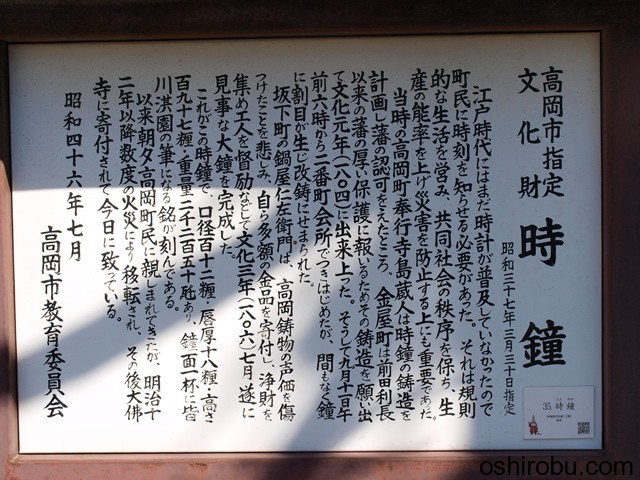 高岡市指定
文化財
時鐘
昭和三十七年三月三十日指定
江戸時代にはまだ時計が普及していなかったので
町民に時刻を知らせる必要があった。それは規則
的な生活を営み、共同社会の秩序を保ち、生
産の能率を上げ災害を防止する上にも重要であった。
当時の高岡町奉行寺島蔵人は時鐘の鋳造を
計画し藩の認可をえたところ、金屋町は前田利長
以来の藩の厚い保護に報いるためその鋳造を願い出
て文化元年(一八〇四)に出来上った。そうして九月十一日午
前六時から二番町会所でつきはじめたが、間もなく鐘
に割目が生じ改鋳にせまられた。
坂下町の鍋屋仁左衛門は、高岡鋳物の声価を傷
つけたことを悲しみ、自ら多額の金品を寄付し、浄財を
集め工人を督励などして文化三年(一八〇六)七月遂に
見事な大鐘を完成した。
これがこの時鐘で、口径百十二糎・唇厚十八糎・高さ
百九十七糎・重量二千二百五十瓩あり、鐘面一杯に皆
川淇園の筆になる銘が刻んである。
以来朝夕高岡町民に親しまれてきたが、明治十
二年以降数度の火災により移転され、その後大佛
寺に寄付されて今日に致っている。
昭和四十六年七月
高岡市教育委員会
35.時鐘
oshirobu.com